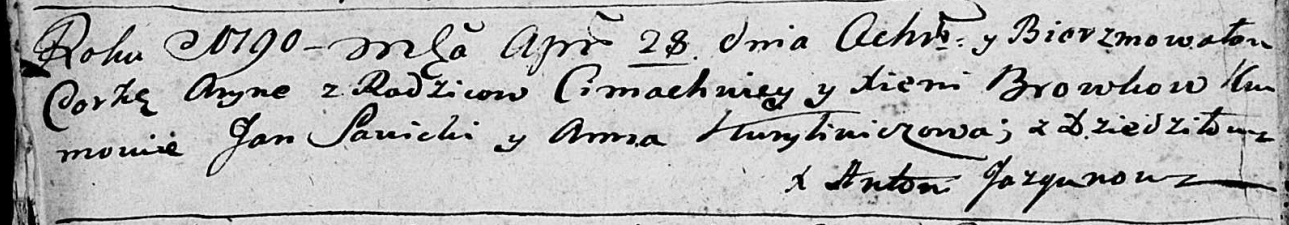 Roku 1790 – Mca Apr. 28. dnia Ochrz. y Bierzmowałem
Corkę Anyne z Rodzicow Cimachwiey y Xieni Browkow Ku
mowie Jan Sawicki y Anna Kuryliniczowa; z Dziedziłowz
x Anton Jazgunowz